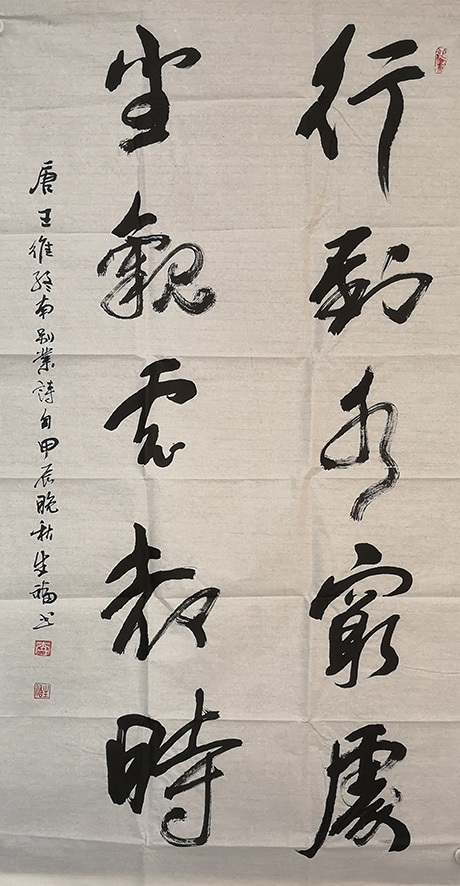 行到水窮處
坐觀雲起時
唐王維終南別業詩句甲辰晚秋生福书